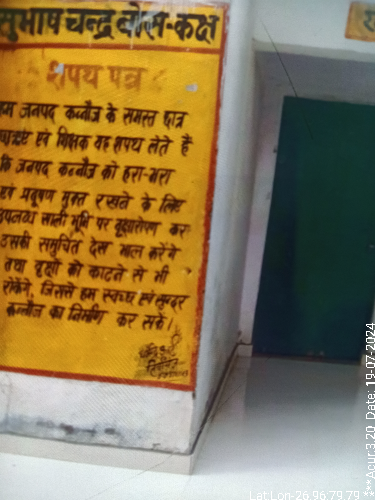 सुभाष चन्द्र बोस-कक्ष
शपथ पत्र
हम जनपद कन्नौज के समस्त छात्र
छात्राएं एवं शिक्षक यह शपथ लेते हैं
कि जनपद कन्नौज को हरा-भरा
एवं प्रदूषण मुक्त रखने के लिए
उपलब्ध खाली भूमि पर वृक्षारोपण कर
उसकी समुचित देख भाल करेंगे
तथा वृक्षों को काटने से भी
रोकेंगे, जिससे हम स्वच्छ एवं सुन्दर
कन्नौज का निर्माण कर सकें।
Lat Lon-26.96:79.79 ***Acur:3.20 Date: 19-07-2024